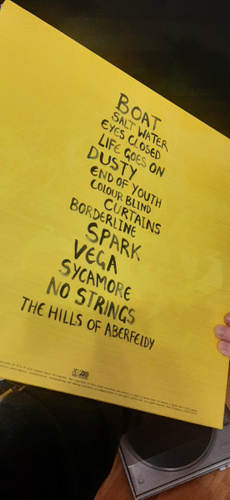 BOAT
SALT WATER
EYES CLOSED
LIFE GOES ON
DUSTY
END OF YOUTH
COLOUR BLIND
CURTAINS
BORDERLINE
SPARK
VEGA
SYCAMORE
NO STRINGS
THE HILLS OF ABERFELDY